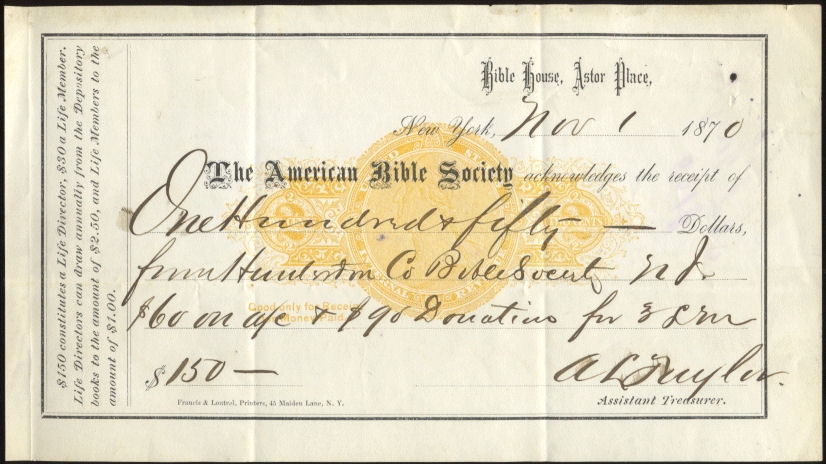 $150 constitutes a Life Director, $30 a Life Member.
Life Directors can draw annually from the Depository
books to the amount of $2.50, and Life Members to the
amount of $1.00.
Bible House, Astor Place,
New York, Nov 1 1870
The American Bible Society acknowledges the receipt of
One Hundred & fifty — Dollars,
from Hunterdon Co Bible Society N J.
$60 on a/c & $90 Donation for 3 L M
Good only for Receipt
Money Paid
$150 —
A L Taylor.
Assistant Treasurer.
Francis & Loutrel, Printers, 45 Maiden Lane, N. Y.